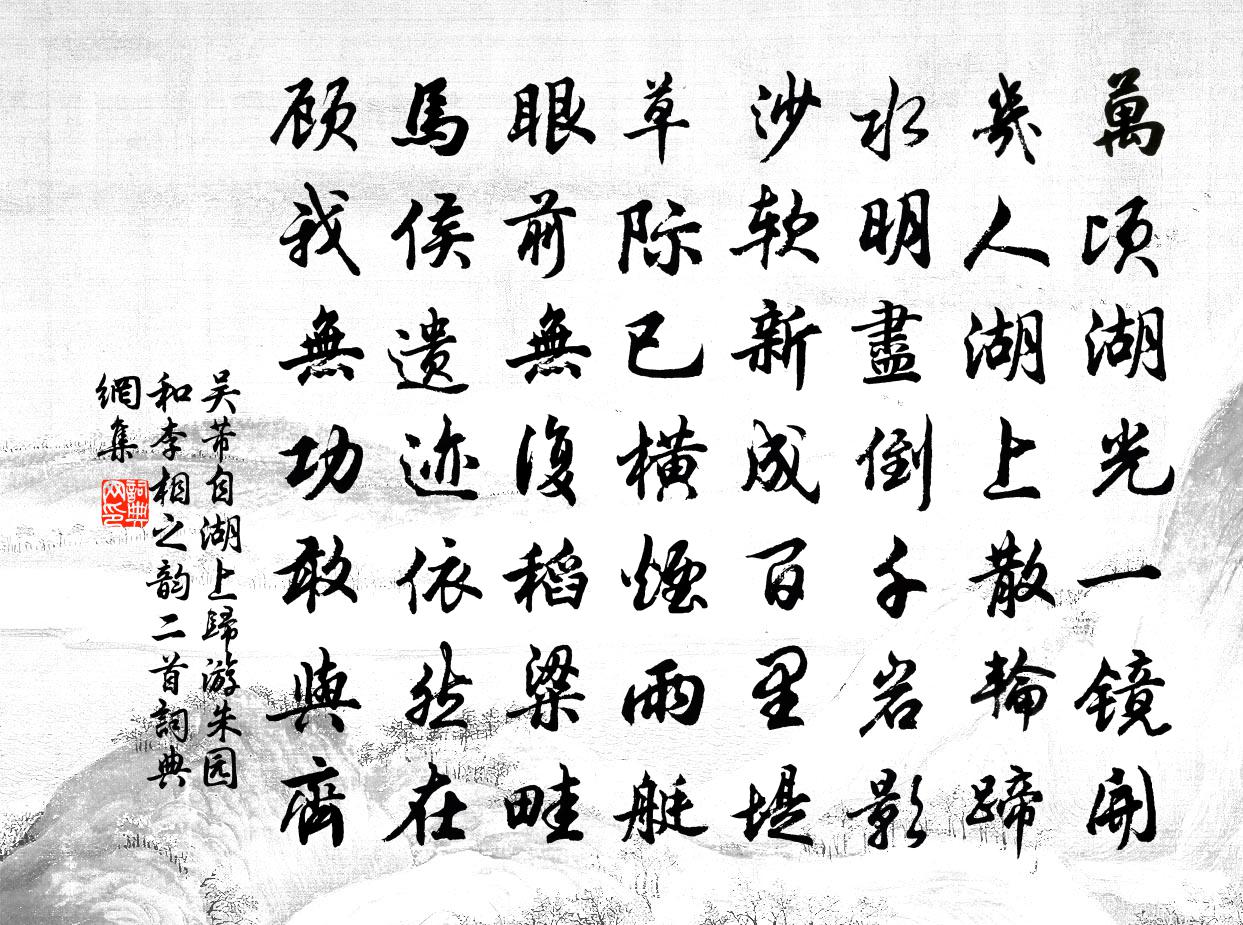 萬顷湖光一镜開
幾人湖上散輪蹄
水明盡倒千岩影
沙软新成百里堤
草际已橫煙雨艇
眼前無復稻粱畦
馬侯遗迹依然在
顾我無功敢與齊
吴芾自湖上歸游朱园
和李相之韵二首詞典
網集
詞典
网印